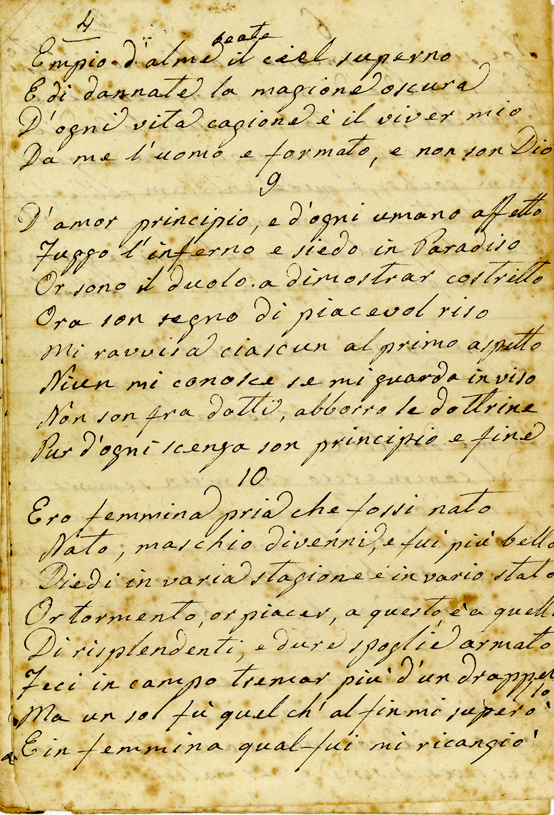 4
Empio d'alme beate il ciel superno
E di dannate la magione oscura
D'ogni vita cagione è il viver mio
Da me l'uomo e formato, e non son Dio
9
D'amor principio, e d'ogni umano affetto
Fuggo l'inferno e siedo in Paradiso
Or sono il duolo a dimostrar costretto
Ora son segno di piacevol riso
Mi ravvisa ciascun al primo aspetto
Niun mi conosce se mi guarda in viso
Non son fra dotti, abborro le dottrine
Pur d'ogni scenza son principio e fine
10
Ero femmina pria che fossi nato
Nato, maschio divenni, e fui più bello
Diedi in varia stagione e in vario stato
Or tormento, or piacer, a questo, e a quell
Di risplendenti, e dure spoglie armato
Feci in campo tremar più d'un drappello
Ma un sol fù quel ch'al fin mi superò
E in femmina qual fui mi ricangiò